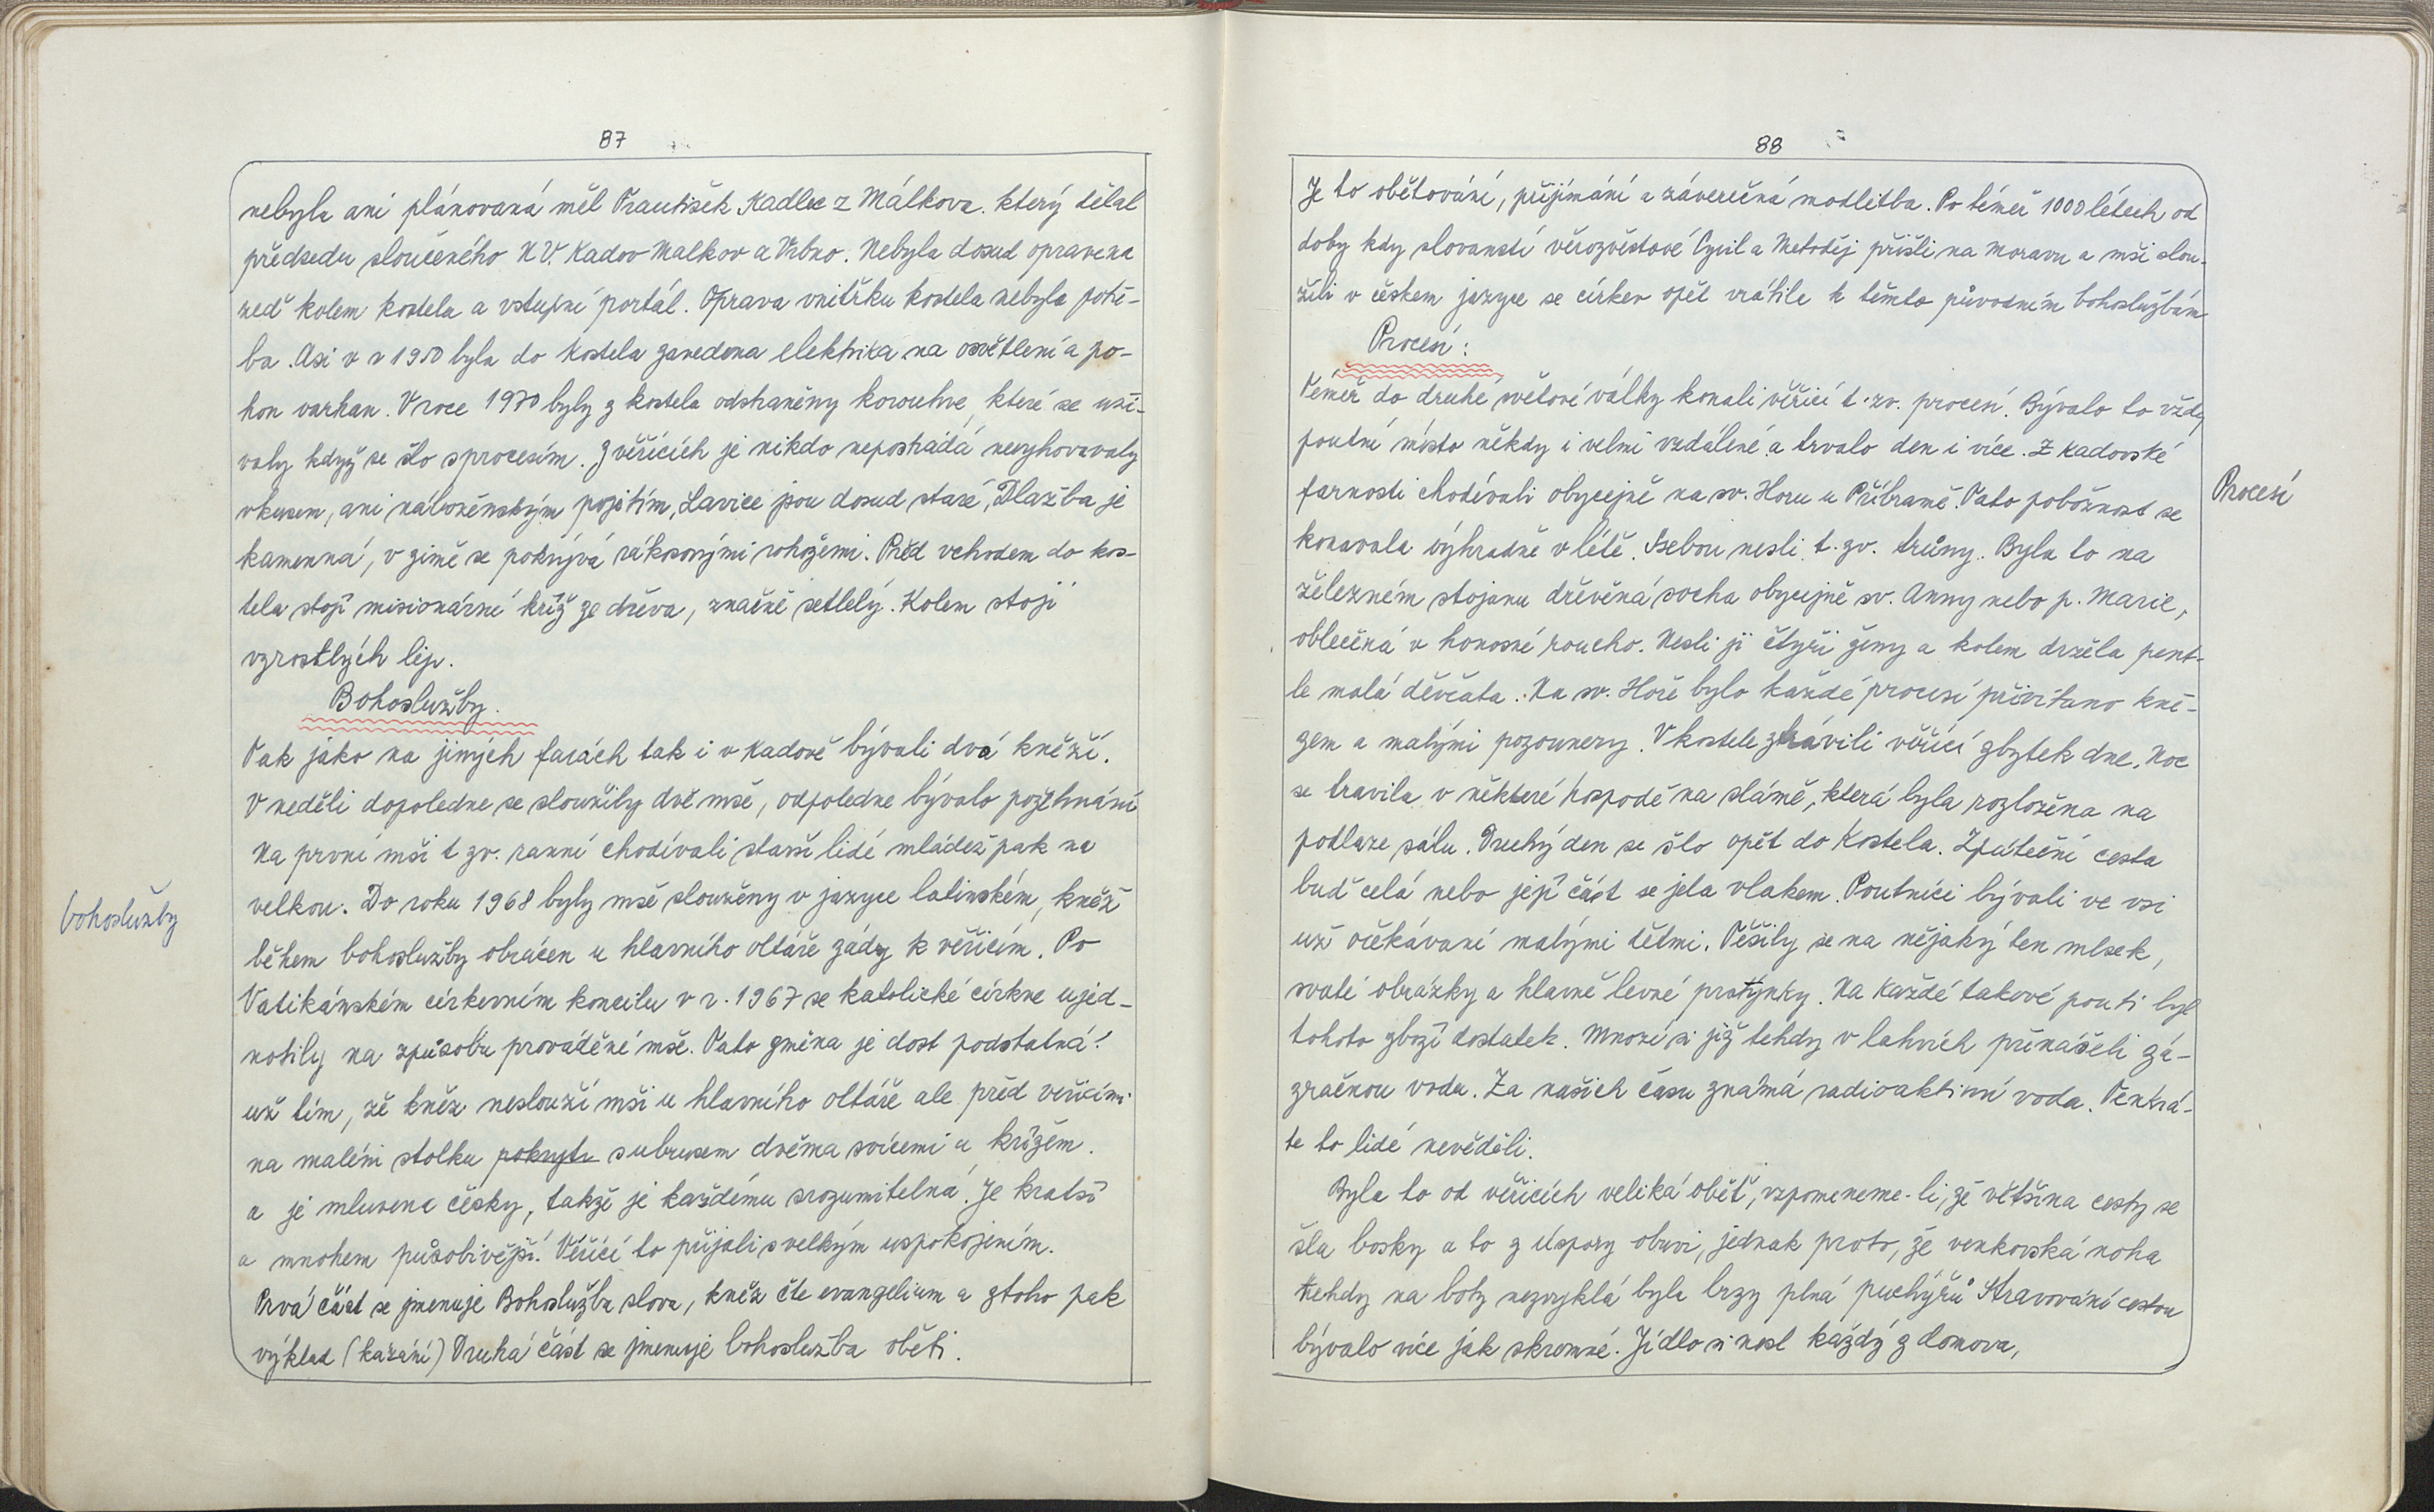 87
nebyla ani plánovaná měl František Kadlec z Málkova. který dělal
předsedu sloučeného N V. Kadov Malkov a Vrbno. Nebyla dosud opravena
zeď kolem kostela a vstupní portál. Oprava vnitřku kostela nebyla potř-
ba. Asi v r 1950 byla do kostela zavedena elektrika na osvětlení a po-
hon varhan. V roce 1970 byly z kostela odstraněny korouhve, které se uží-
valy když se šlo sprocesím. Z věřících je nikdo nepostrádá nevyhovovaly
vkusem, ani náboženským pojetím, Lavice jsou dosud staré, Dlažba je
kamenná, v zimě se pokrývá rákosovými rohožemi. Před vchodem do kos-
tela stojí misionární kříž ze dřeva, značně setlelý. Kolem stojí
vzrostlých lip.
Bohoslužby.
Tak jako na jiných farách tak i v Kadově bývali dva kněží.
V neděli dopoledne se sloužily dvě mše, odpoledne bývalo požehnání
Na první mši t zv. ranní chodívali starší lidé mládež pak na
velkou. Do roku 1968 byly mše slouženy v jazyce latinském, kněz
bohoslužby
během bohoslužby obrácen u hlavního oltáře zády k věřícím. Po
Vatikánském církevním koncilu v r. 1967 se katolické církve ujed-
notily na způsobu prováděné mše. Tato změna je dost podstatná!
už tím, že kněz neslouží mši u hlavního oltáře ale před věřícími
na malém stolku pokryté subrusem dvěma svícemi a křížem.
a je mluvena česky, takže je každému srozumitelná. Je kratší
a mnohem působivější. Věřící to přijali svelkým uspokojením.
Prvá část se jmenuje Bohoslužba slova, kněz čte evangelium a ztoho pak
výklad (kázání) Druhá část se jmenuje bohoslužba oběti.
88
Je to obětování, přijímání a závěrečná modlitba. Po téměř 1000 létech od
doby kdy slovanstí věrozvěstové Cyril a Metoděj přišli na Moravu a mši slou-
žili v českem jazyce se církev opět vrátila k těmto původním bohoslužbám
Procesí:
Téměř do druhé světové války konali věřící t. zv. procesí. Bývalo to vždy
poutní místo někdy i velmi vzdálené a trvalo den i více. Z Kadovské
farnosti chodívali obyčejně na sv. Horu u Příbramě. Tato pobožnost se
Procesí
konavala výhradně v létě. Ssebou nesli t. zv. trůny. Byla to na
železném stojanu dřevěná socha obyčejně sv. Anny nebo p. Marie,
oblečená v honosné roucho. Nesli ji čtyři ženy a kolem držela pent-
le malá děvčata. Na sv. Hoře bylo každé procesí přivítano kně-
zem a malými pozounery. V kostele ztrávili věřící zbytek dne. Noc
se travila v některé hospodě na slámě, která byla rozložena na
podlaze sálu. Druhý den se šlo opět do kostela. Zpáteční cesta
buď celá nebo její část se jela vlakem. Poutníci bývali ve vsi
už očekávaní malými dětmi. Těšily se na nějaký ten mlsek,
svaté obrázky a hlavně levné prstýnky. Na každé takové pouti byl
tohoto zboží dostatek. Mnozí si již tehdy v lahvích přinášeli zá-
zračnou vodu. Za našich času známá radioaktivní voda. Tenkrá-
te to lidé nevěděli.
Byla to od věřících veliká oběť, vzpomeneme-li, že většina cesty se
šla bosky a to z úspory obuvi, jednak proto, že venkovská noha
tehdy na boty nezvyklá byla brzy plná puchýřů Stravování cestou
bývalo více jak skromné. Jídlo si nesl každý z domova,